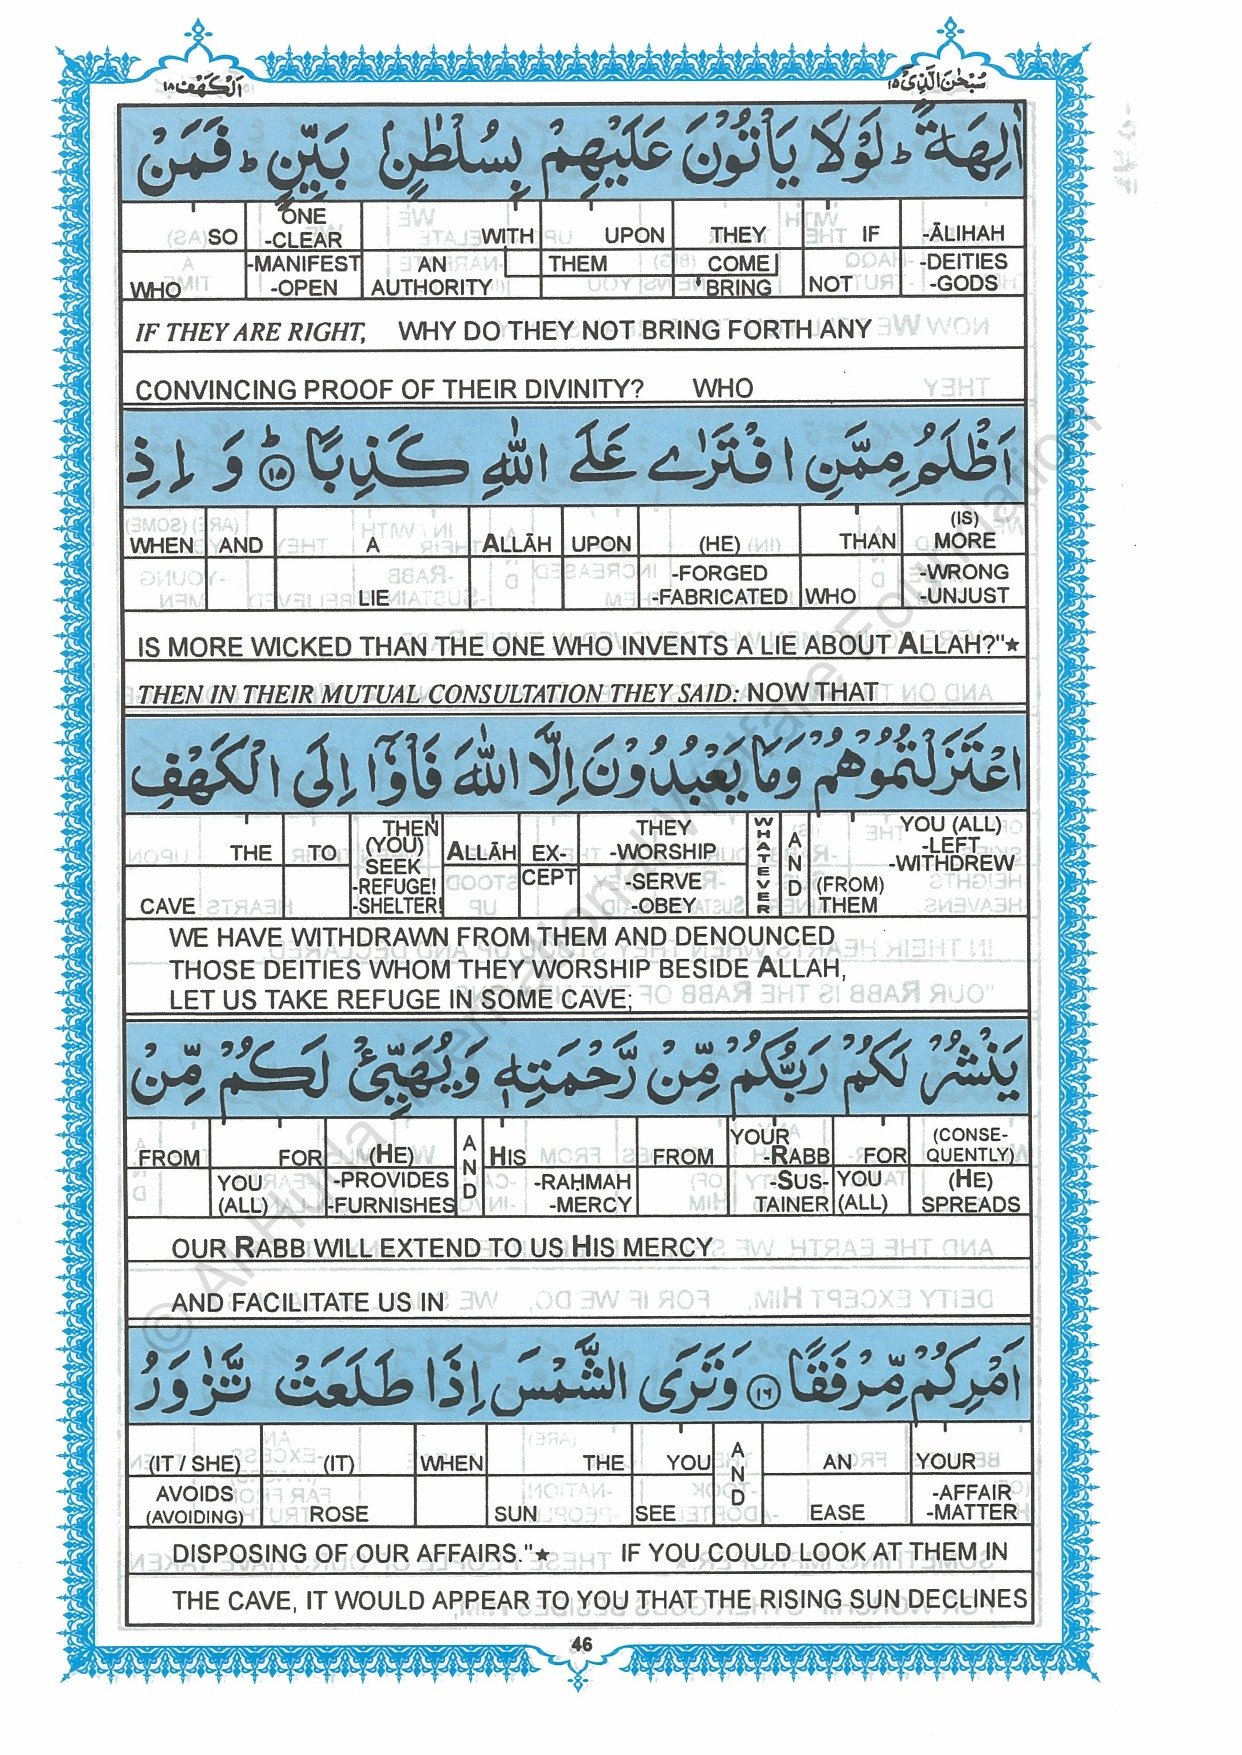 اَلْكَهْف ١٨
سُبْحٰنَ الَّذِيْٓ ١٥
اٰلِهَةً ؕ لَوْلَا يَاْتُوْنَ عَلَيْهِمْ بِسُلْطٰنٍۭ بَيِّنٍ ؕ فَمَنْ
SO ONE -CLEAR WITH UPON THEY IF -ĀLIHAH
WHO -MANIFEST -OPEN AN AUTHORITY THEM COME BRING NOT -DEITIES -GODS
IF THEY ARE RIGHT, WHY DO THEY NOT BRING FORTH ANY
CONVINCING PROOF OF THEIR DIVINITY? WHO
اَظْلَمُ مِمَّنِ افْتَرٰى عَلَى اللّٰهِ كَذِبًا ؕ ١٥ وَ اِذِ
WHEN AND A ALLĀH UPON (HE) THAN (IS) MORE
LIE -FORGED -FABRICATED WHO -WRONG -UNJUST
IS MORE WICKED THAN THE ONE WHO INVENTS A LIE ABOUT ALLAH?"★
THEN IN THEIR MUTUAL CONSULTATION THEY SAID: NOW THAT
اعْتَزَلْتُمُوْهُمْ وَمَا يَعْبُدُوْنَ اِلَّا اللّٰهَ فَاْوٗٓا اِلَى الْكَهْفِ
THE TO THEN (YOU) SEEK ALLĀH EX- THEY -WORSHIP WHATEVER AND YOU (ALL) -LEFT -WITHDREW
CAVE -REFUGE! -SHELTER! CEPT -SERVE -OBEY (FROM) THEM
WE HAVE WITHDRAWN FROM THEM AND DENOUNCED
THOSE DEITIES WHOM THEY WORSHIP BESIDE ALLAH,
LET US TAKE REFUGE IN SOME CAVE;
يَنْشُرْ لَكُمْ رَبُّكُمْ مِّنْ رَّحْمَتِهٖ وَيُهَيِّئْ لَكُمْ مِّنْ
FROM FOR (HE) AND HIS FROM YOUR -RABB FOR (CONSE- QUENTLY)
YOU (ALL) -PROVIDES -FURNISHES -RAḤMAH -MERCY -SUS- TAINER YOU (ALL) (HE) SPREADS
OUR RABB WILL EXTEND TO US HIS MERCY
AND FACILITATE US IN
اَمْرِكُمْ مِّرْفَقًا ١٦ وَتَرَى الشَّمْسَ اِذَا طَلَعَتْ تَّزٰوَرُ
(IT / SHE) (IT) WHEN THE YOU AND AN YOUR
AVOIDS (AVOIDING) ROSE SUN SEE EASE -AFFAIR -MATTER
DISPOSING OF OUR AFFAIRS."★ IF YOU COULD LOOK AT THEM IN
THE CAVE, IT WOULD APPEAR TO YOU THAT THE RISING SUN DECLINES
46
© Al Huda International Welfare Foundation